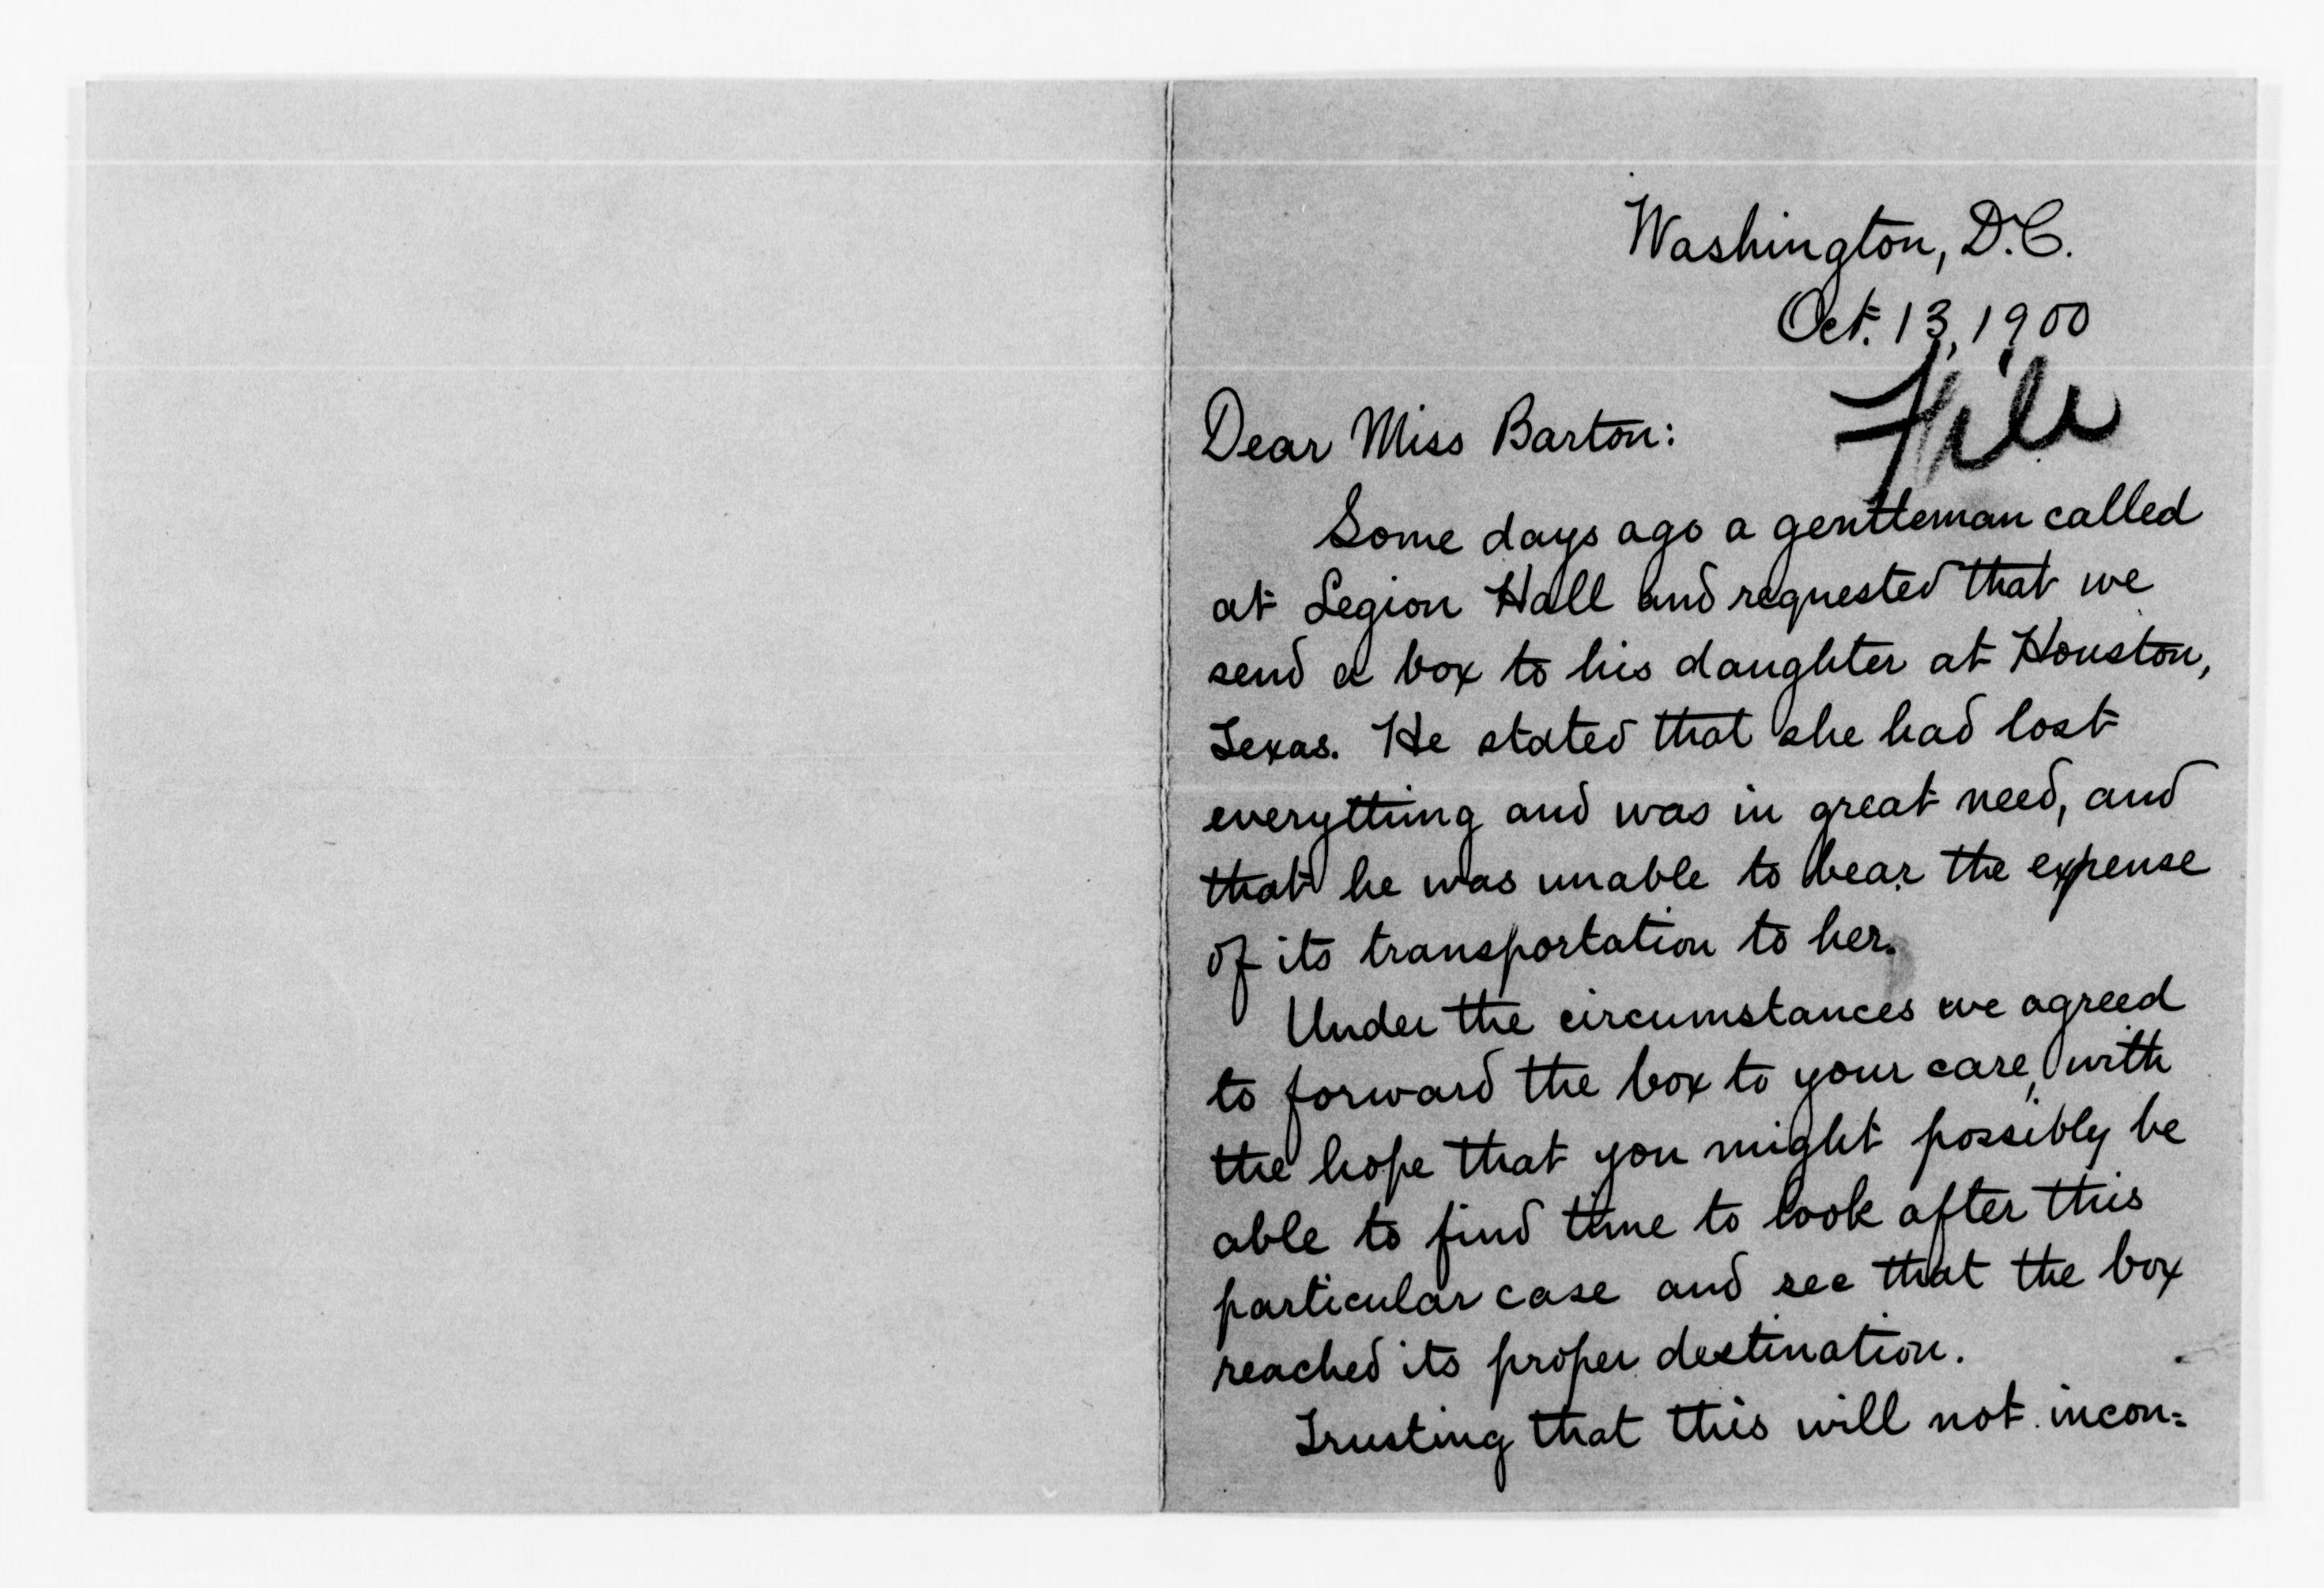 Washington, D.C.
Oct. 13, 1900
File
Dear Miss Barton:
Some days ago a gentleman called
at Legion Hall and requested that we
send a box to his daughter at Houston,
Texas. He stated that she had lost
everything and was in great need, and
that he was unable to bear the expense
of its transportation to her.
Under the circumstances we agreed
to forward the box to your care, with
the hope that you might possibly be
able to find time to look after this
particular case and see that the box
reached its proper destination.
Trusting that this will not incon=